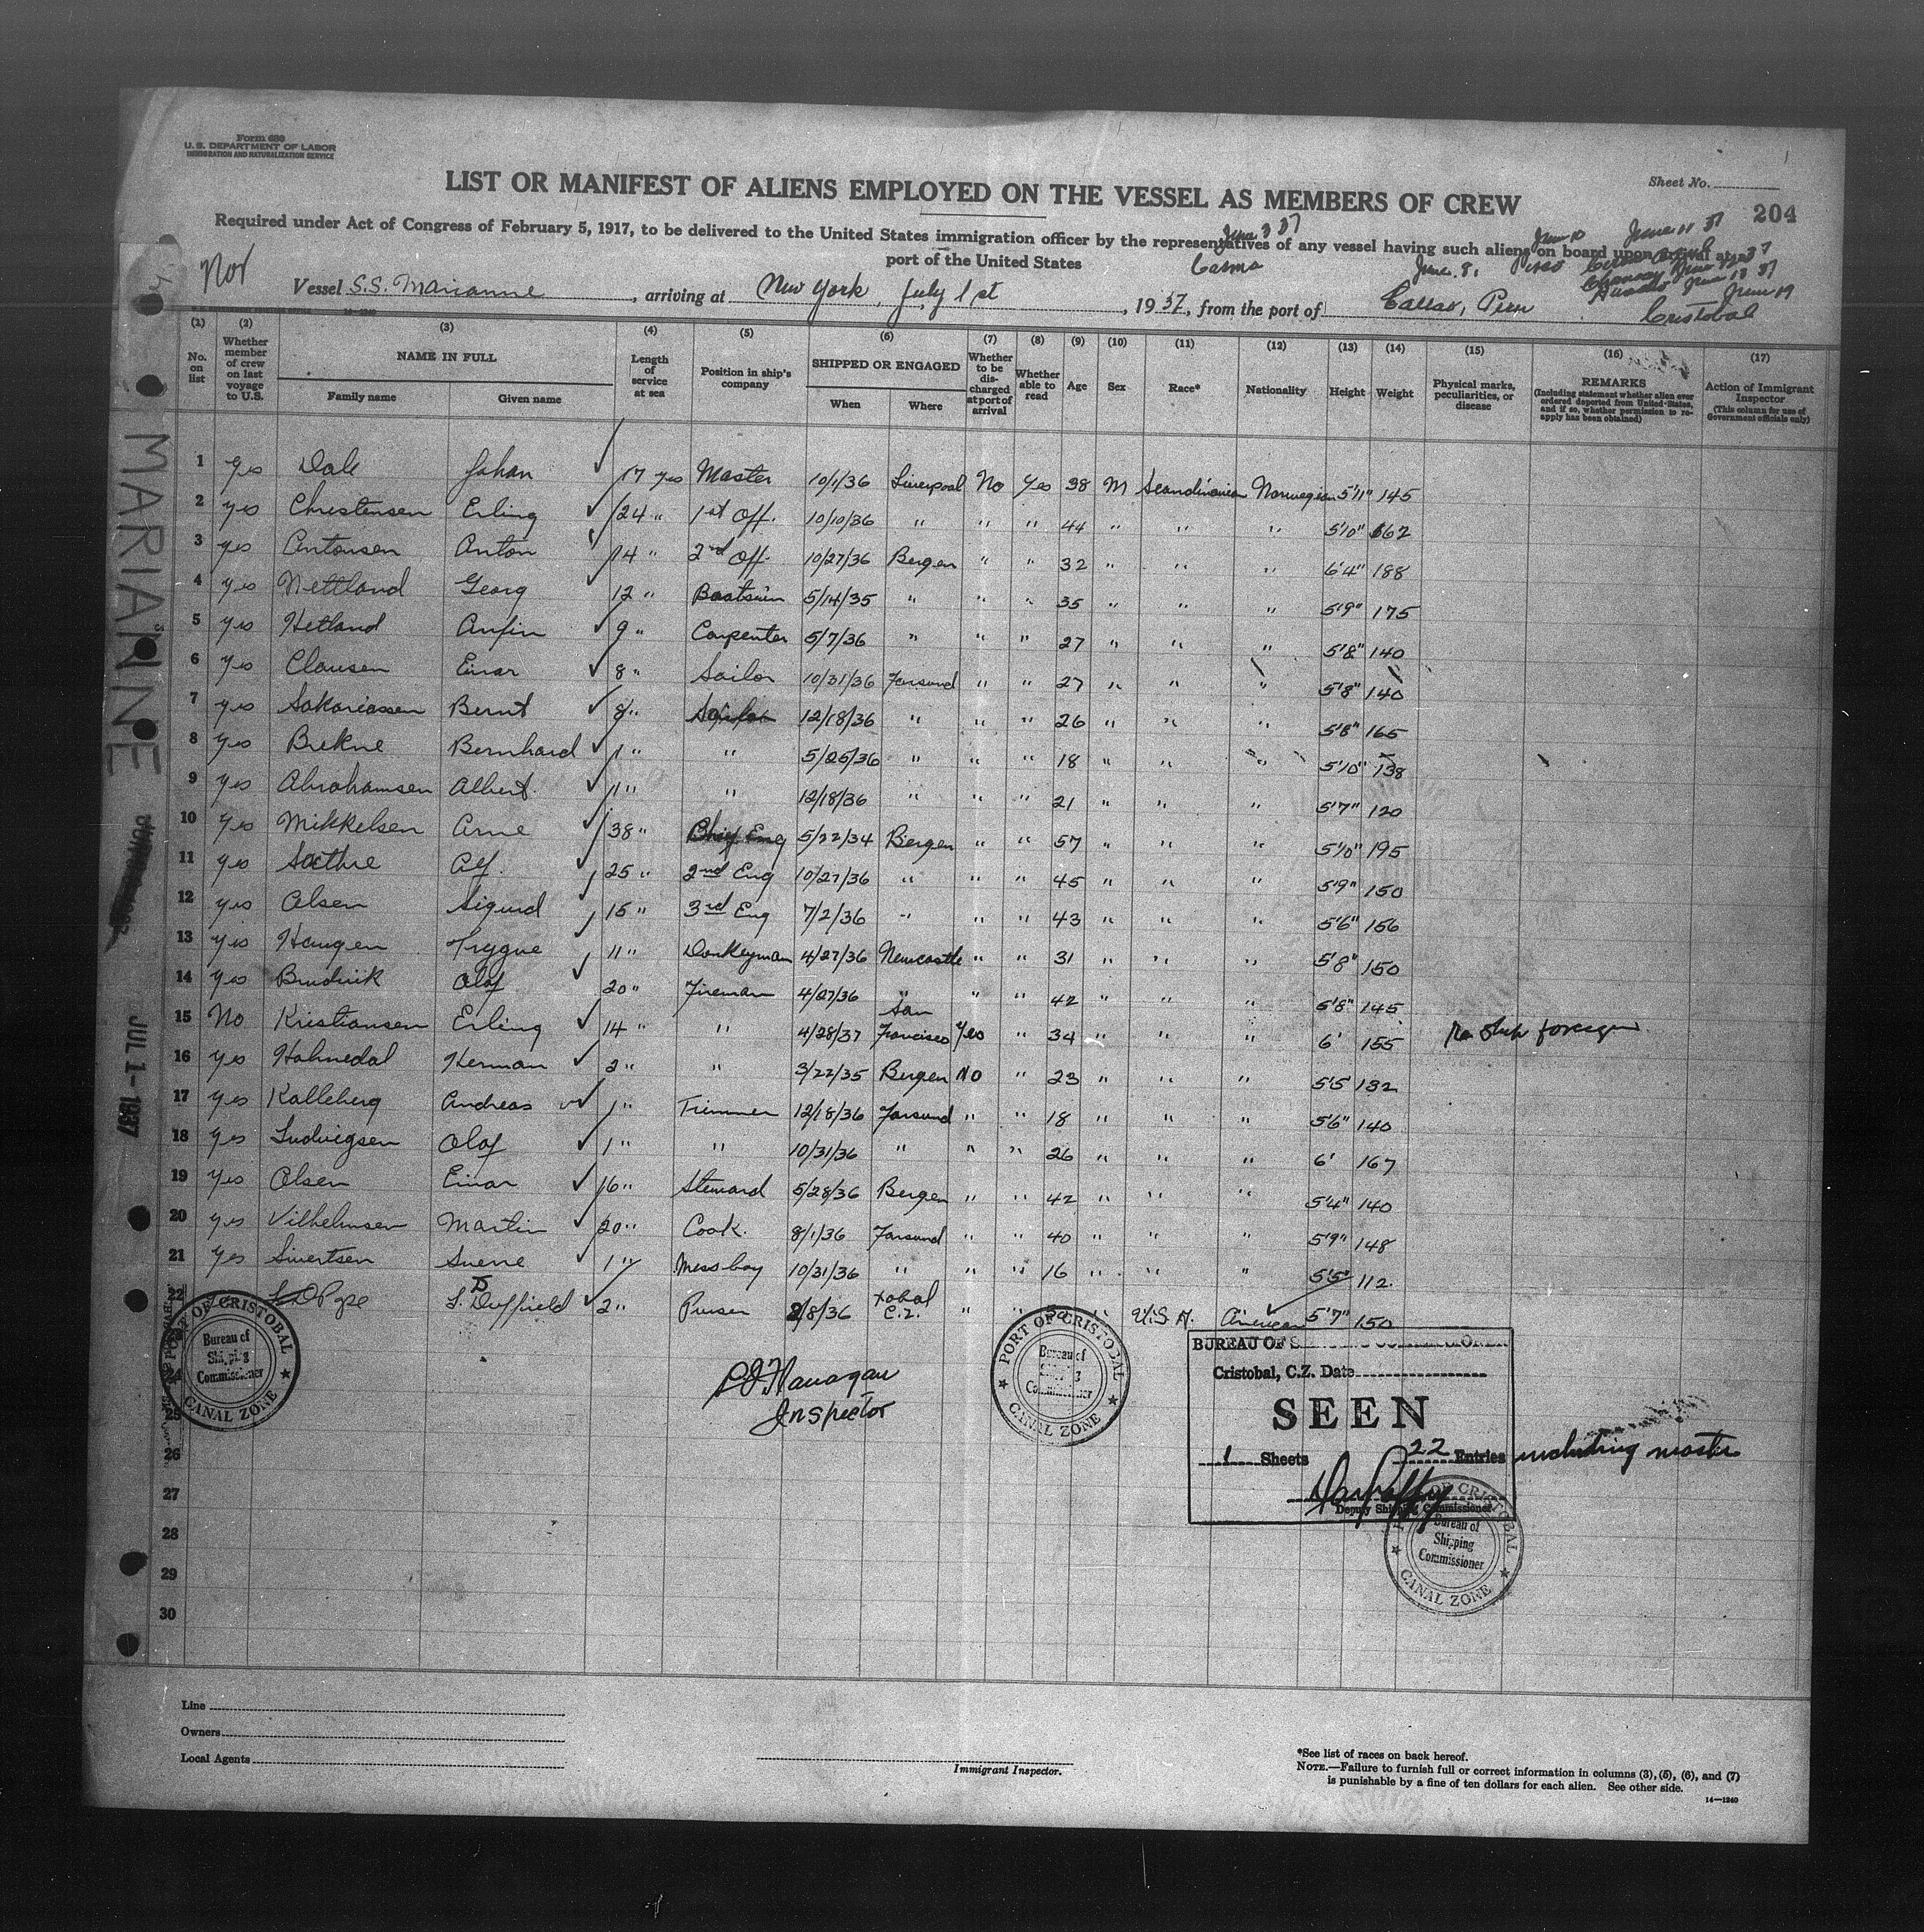 Form 680
U. S. DEPARTMENT OF LABOR
IMMIGRATION AND NATURALIZATION SERVICE
Sheet No.
1
204
LIST OR MANIFEST OF ALIENS EMPLOYED ON THE VESSEL AS MEMBERS OF CREW
Required under Act of Congress of February 5, 1917, to be delivered to the United States immigration officer by the representatives of any vessel having such aliens on board upon arrival at a
port of the United States
June 3 37
June 10
June 11 37
Casma
June 8,
Nor
Vessel S.S. Marianne, arriving at New York, July 1st, 1937, from the port of Callao, Peru
June 19
Cristobal
(1) (2) (3) (4) (5) (6) (7) (8) (9) (10) (11) (12) (13) (14) (15) (16) (17)
No. on list
Whether member of crew on last voyage to U.S.
NAME IN FULL
Family name
Given name
Length of service at sea
Position in ship's company
SHIPPED OR ENGAGED
When
Where
Whether to be discharged at port of arrival
Whether able to read
Age
Sex
Race*
Nationality
Height
Weight
Physical marks, peculiarities, or disease
REMARKS
(Including statement whether alien ever ordered deported from United States, and if so, whether permission to reapply has been obtained)
Action of Immigrant Inspector
(This column for use of Government officials only)
1 Yes Dale Johan 17 yes Master 10/1/36 Liverpool No Yes 38 M Scandinavian Norwegian 5'11" 145
2 yes Christensen Erling 24 " 1st Off. 10/10/36 " " " 44 " " " 5'10" 162
3 yes Antonsen Anton 14 " 2nd Off. 10/27/36 Bergen " " 32 " " " 6'4" 188
4 yes Nettland Georg 12 " Boatswin 5/14/35 " " " 35 " " " 5'9" 175
5 yes Hetland Anfin 9 " Carpenter 5/7/36 " " " 27 " " " 5'8" 140
6 Yes Clausen Einar 8 " Sailor 10/31/36 Farsund " " 27 " " " 5'8" 140
7 yes Sakariassen Bernt 8 " Sailor 12/18/36 " " " 26 " " " 5'8" 165
8 Yes Brekne Bernhard 1 " " 5/25/36 " " " 18 " " " 5'10" 138
9 Yes Abrahamsen Albert 1 " " 12/18/36 " " " 21 " " " 5'7" 120
10 Yes Mikkelsen Arne 38 " Chief Eng 5/22/34 Bergen " " 57 " " " 5'10" 195
11 yes Sæthre Alf. 25 " 2nd Eng 10/27/36 " " " 45 " " " 5'9" 150
12 yes Olsen Sigurd 15 " 3rd Eng 7/2/36 " " " 43 " " " 5'6" 156
13 yes Haugen Trygve 11 " Donkeyman 4/27/36 Newcastle " " 31 " " " 5'8" 150
14 Yes Brudvik Olaf 20 " Fireman 4/27/36 " " " 42 " " " 5'8" 145
15 No Kristiansen Erling 14 " " 4/28/37 San Francisco Yes " 34 " " " 6' 155 Re Ship foreign
16 yes Hahnedal Herman 2 " " 3/22/35 Bergen No " 23 " " " 5'5 132
17 yes Kalleberg Andreas 1 " Trimmer 12/18/36 Farsund " " 18 " " " 5'6" 140
18 Yes Ludvigsen Olaf 1 " " 10/31/36 " " " 26 " " " 6' 167
19 Yes Olsen Einar 16 " Steward 5/28/36 Bergen " " 42 " " " 5'4" 140
20 yes Vilhelmsen Martin 20 " Cook. 8/1/36 Farsund " " 40 " " " 5'9" 148
21 Yes Sivertsen Sverre 1 " Messboy 10/31/36 " " " 16 " " " 5'5" 112.
22 L. D. Duffield 2 " Purser 2/8/36 Xobal C.Z. " " " U.S.A. American 5'7" 150
24
25
26
27
28
29
30
PORT OF CRISTOBAL
Bureau of
Shipping
Commissioner
CANAL ZONE
Flanagan
Inspector
PORT OF CRISTOBAL
Bureau of
Shipping
Commissioner
CANAL ZONE
BUREAU OF SHIPPING COMMISSIONER
Cristobal, C.Z. Date
SEEN
1 Sheets 22 Entries including master
Deputy Shipping Commissioner
PORT OF CRISTOBAL
Bureau of
Shipping
Commissioner
CANAL ZONE
MARIANNE
JUL 1 - 1937
Line
Owners
Local Agents
Immigrant Inspector.
*See list of races on back hereof.
NOTE.—Failure to furnish full or correct information in columns (3), (5), (6), and (7)
is punishable by a fine of ten dollars for each alien. See other side.
14—1240